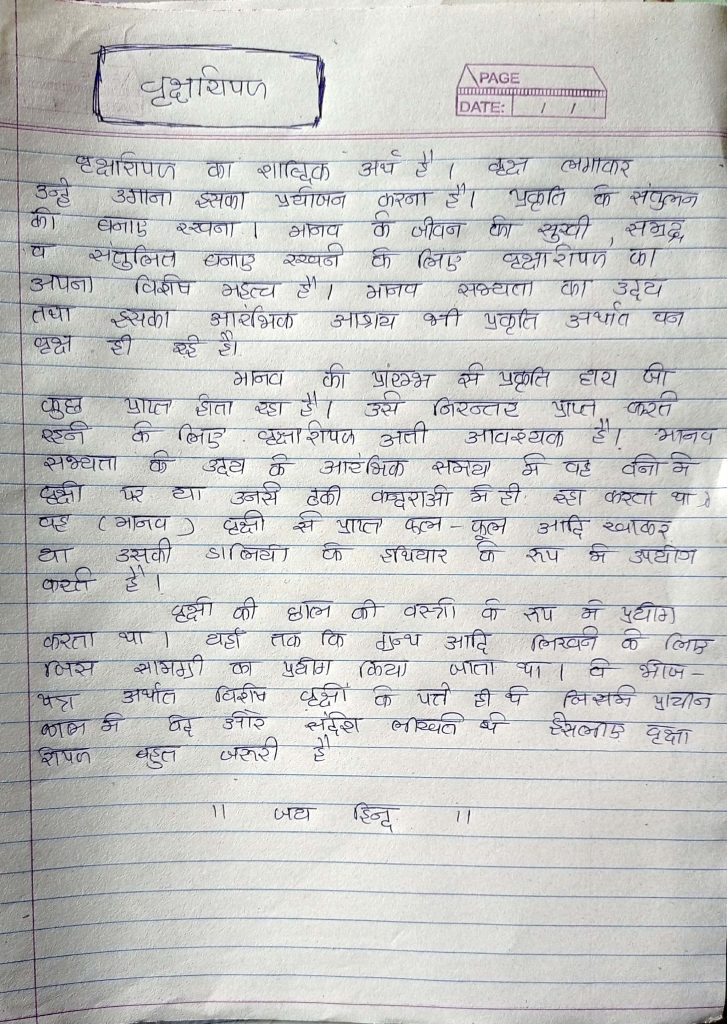 वृक्षारोपण
PAGE
DATE: / /
वृक्षारोपण का शाब्दिक अर्थ है। वृक्ष लगाकर
उन्हे उगाना इसका प्रयोजन करना है। प्रकृति के संतुलन
को बनाए रखना। मानव के जीवन को सुखी, समृद्ध
व संतुलित बनाए रखने के लिए वृक्षारोपण का
अपना विशेष महत्व है। मानव सभ्यता का उदय
तथा इसका आरंभिक आश्रय भी प्रकृति अर्थात वन
वृक्ष ही रहे है।
मानव को प्रारम्भ से प्रकृति द्वारा जो
कुछ प्राप्त होता रहा है। उसे निरन्तर प्राप्त करते
रहने के लिए वृक्षारोपण अती आवश्यक है। मानव
सभ्यता के उदय के आरंभिक समय में वह वनो में
वृक्षो पर या उनसे ढकी कन्दराओ में ही रहा करता था।
वह (मानव) वृक्षो से प्राप्त फल - फूल आदि खाकर
था उसकी डालियो के हथियार के रूप में उपयोग
करते है।
वृक्षो की छाल को वस्त्रो के रूप में प्रयोग
करता था। यहाँ तक कि ग्रन्थ आदि लिखने के लिए
जिस सामग्री का प्रयोग किया जाता था। वे भोज -
पत्र अर्थात विशेष वृक्षों के पत्ते ही थे जिसमे प्राचीन
काल में वेद और संदेश लीखते थे इसलीए वृक्षा
रोपण बहुत जरूरी है
।। जय हिन्द ।।